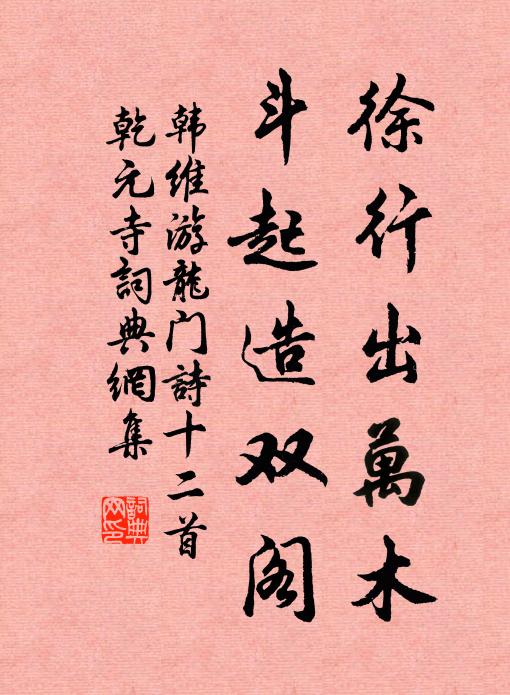 徐行出萬木
斗起造双阁
韩维游龍门詩十二首
乾元寺詞典網集
詞典网印